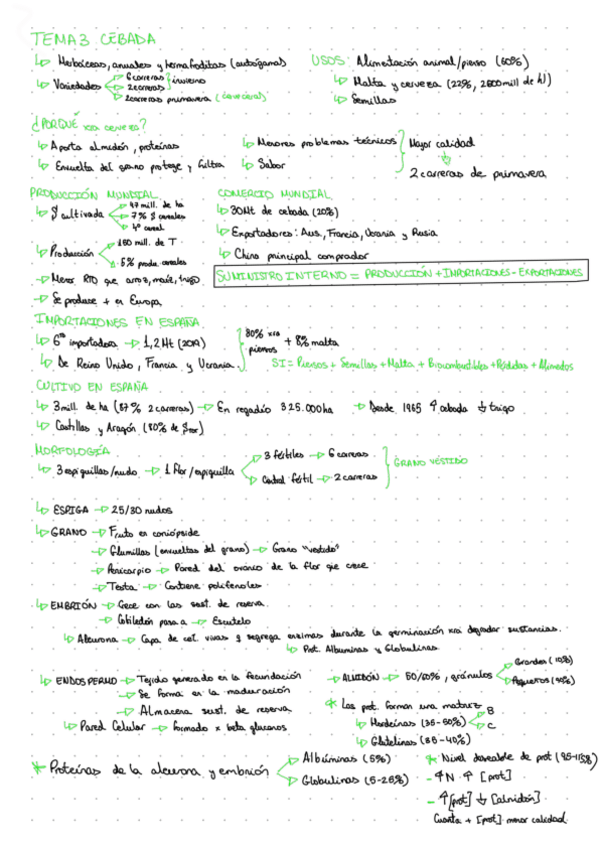 TEMA 3 CEBADA
Herbáceas, anuales y hermafroditas (autógama)
Variedades 6 carreras
2 carreras
invierno
2 carreras primavera (cervecera)
USOS: Alimentación animal/pienso (60%)
Malta y cerveza (22%, 2800 mill de hl)
Semillas
¿PORQUÉ xa cerveza?
Aporta almidón, proteínas
Envuelta del grano protege y filtra
Menores problemas técnicos
Sabor
Mayor calidad
2 carreras de primavera
PRODUCCIÓN MUNDIAL
S cultivada 47 mill. de ha
7% S cereales
4º cereal
Producción 160 mill. de T
5% produ. cereales
Menor RTO que arroz, maíz, trigo
Se produce + en Europa
COMERCIO MUNDIAL
30Mt de cebada (20%)
Exportadores: Aus., Francia, Ucrania y Rusia
China principal comprador
SUMINISTRO INTERNO = PRODUCCIÓN + IMPORTACIONES - EXPORTACIONES
IMPORTACIONES EN ESPAÑA
importadora 1,2 Mt (2019)
De Reino Unido, Francia y Ucrania
80% xa piensos + 8% malta
SI = Piensos + Semillas + Malta + Biocombustibles + Pérdidas + Alimentos
CULTIVO EN ESPAÑA
3 mill. de ha (87% 2 carreras) En regadío 325.000 ha Desde 1965 ↑ cebada ↓ trigo
Castillas y Aragón (80% de )
MORFOLOGÍA
3 espiguillas/nudo 1 flor/espiguilla 3 fértiles 6 carreras
Central fértil 2 carreras
GRANO VESTIDO
ESPIGA 25/30 nudos
GRANO Fruto en cariópside
Glumillas (envueltas del grano) Grano "vestido"
Pericarpio Pared del ovario de la flor que crece
Testa Contiene polifenoles
EMBRIÓN Crece con las sust. de reserva
Cotiledón pasa a Escutelo
Aleurona Capa de cel. vivas q segrega enzimas durante la germinación xa degradar sustancias.
Prot. Albuminas y Globulinas
ENDOSPERMO Tejido generado en la fecundación
Se forma en la maduración
Almacena sust. de reserva
Pared Celular formado x beta glucanos
ALMIDÓN 50/60%, gránulos Grandes (10%)
Pequeños (90%)
* Las prot. forman una matriz
Hordeínas (35-50%) B
C
Glutelinas (35-40%)
* Proteínas de la aleurona y embrión Albúminas (5%)
Globulinas (5-25%)
* Nivel deseable de prot (9,5-11,5%)
- ↑N ↑ [prot]
- ↑[prot] ↓ [almidón]
Cuanta + [prot] menor calidad.